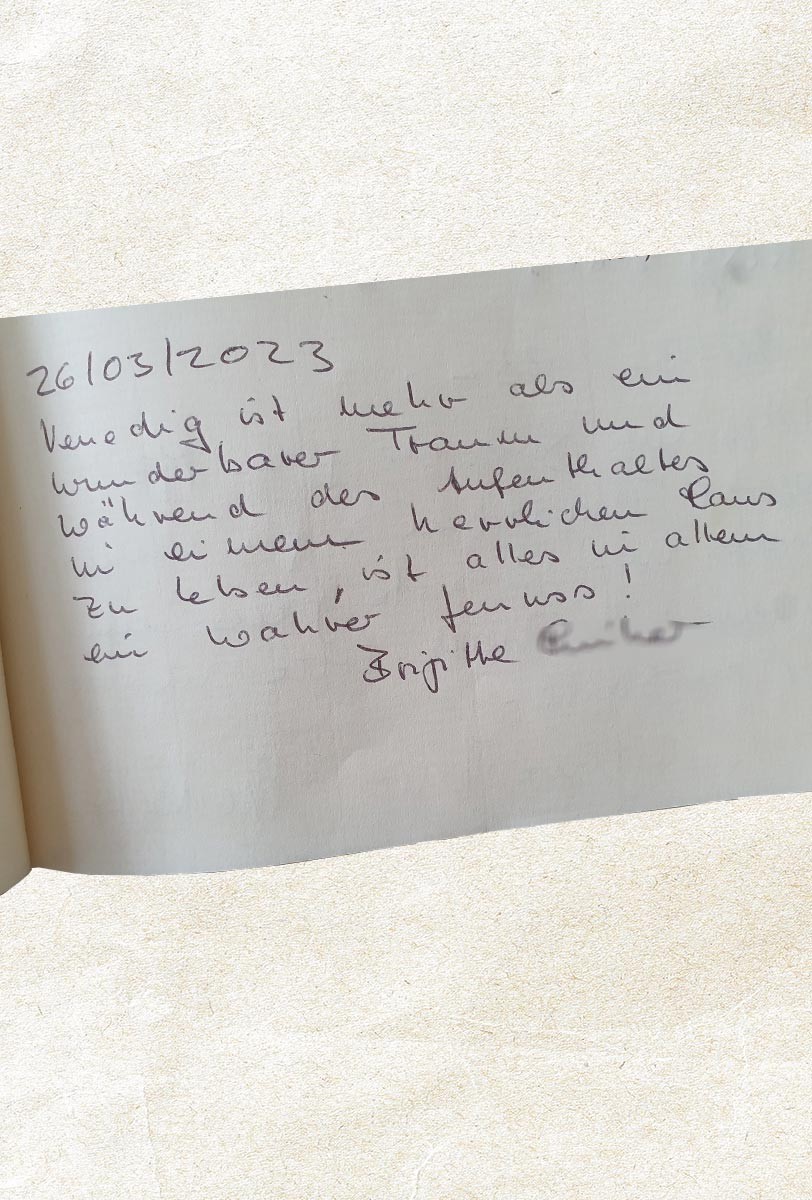 26/03/2023
Venedig ist mehr als ein
wunderbarer Traum und
während des Aufenthaltes
in einem herrlichen Haus
zu leben, ist alles in allem
ein wahrer Genuss!
Brigitte